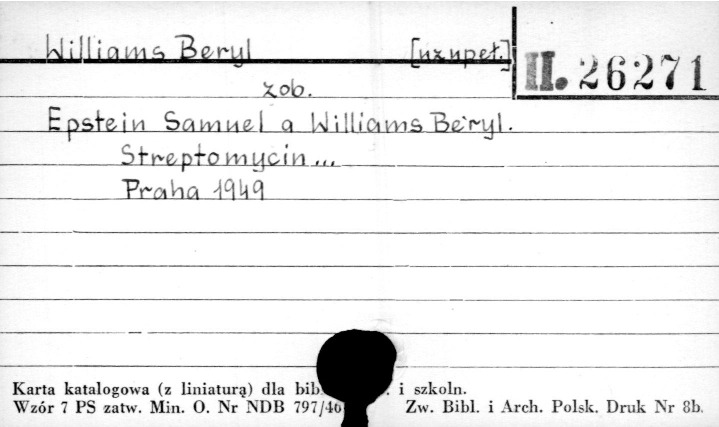 Williams Beryl [uzupeł.] II. 26271
zob.
Epstein Samuel a Williams Beryl.
Streptomycin...
Praha 1949
Karta katalogowa (z liniaturą) dla i szkoln.
Wzór 7 PS zatw. Min. O. Nr NDB Zw. Bibl. i Arch. Polsk. Druk Nr 8b.